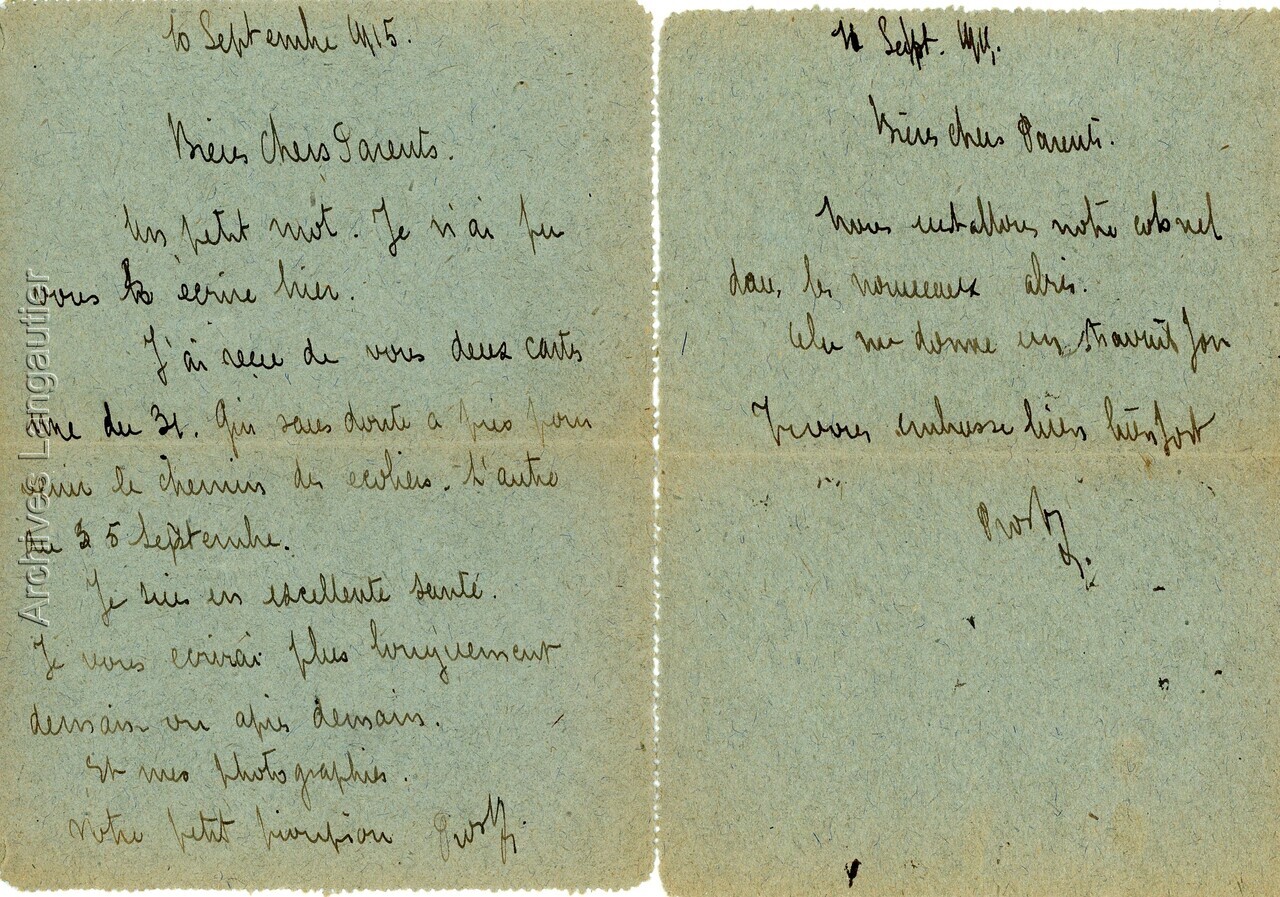 10 Septembre 1915.
Biens Chers Parents.
Un petit mot. Je n'ai pu
vous écrire hier.
J'ai reçu de vous deux cartes
une du 31. Qui sans doute a pris pour
venir le chemin des ecoliers. L'autre
du 5 Septembre.
Je suis en excellente santé.
Je vous ecrirai plus longuement
demain ou après demain.
Et mes photographies.
Votre petit pioupiou
11 Sept. 1915.
Biens chers Parents.
Nous installons notre colonel
dans les nouveaux abris.
Cela me donne un travail fou
Je vous embrasse bien bien fort
Archives Langautier